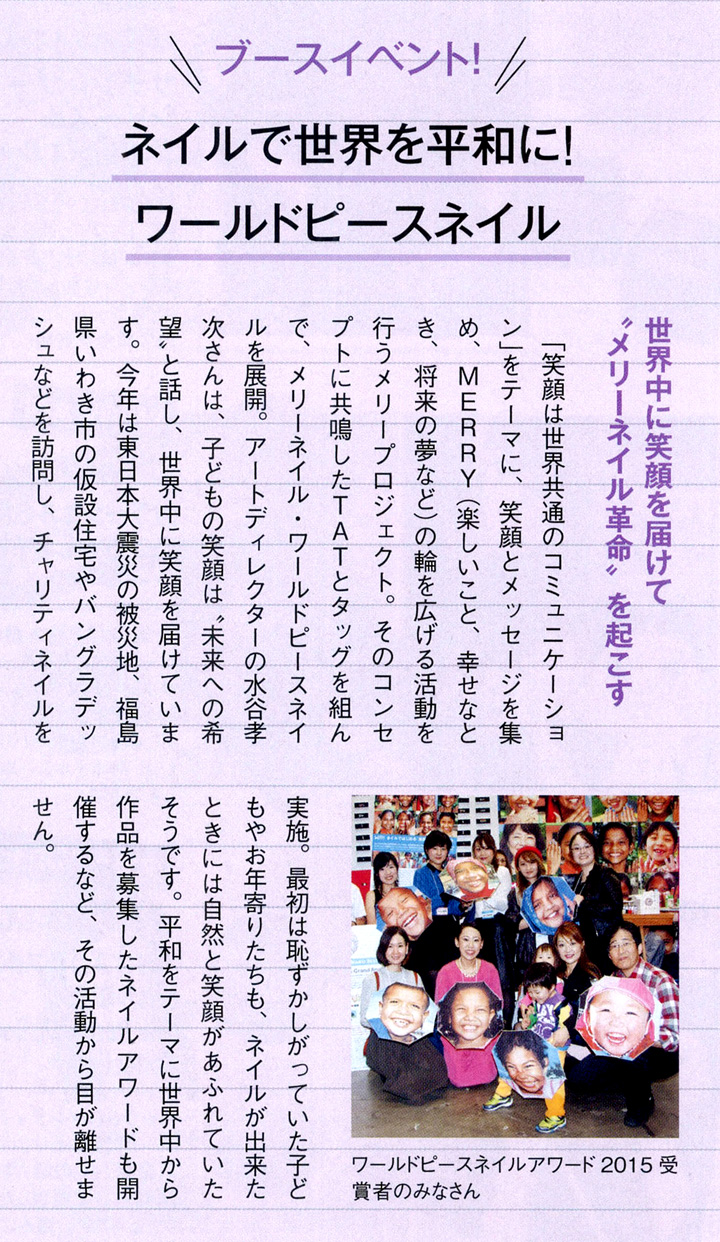 ブースイベント!
ネイルで世界を平和に!
ワールドピースネイル
世界中に笑顔を届けて
〝メリーネイル革命〟を起こす
「笑顔は世界共通のコミュニケーショ
ン」をテーマに、笑顔とメッセージを集
め、MERRY(楽しいこと、幸せなと
き、将来の夢など)の輪を広げる活動を
行うメリープロジェクト。そのコンセ
プトに共鳴したTATとタッグを組ん
で、メリーネイル・ワールドピースネイ
ルを展開。アートディレクターの水谷孝
次さんは、子どもの笑顔は〝未来への希
望〟と話し、世界中に笑顔を届けていま
す。今年は東日本大震災の被災地、福島
県いわき市の仮設住宅やバングラデッ
シュなどを訪問し、チャリティネイルを
実施。最初は恥ずかしがっていた子ど
もやお年寄りたちも、ネイルが出来た
ときには自然と笑顔があふれていた
そうです。平和をテーマに世界中から
作品を募集したネイルアワードも開
催するなど、その活動から目が離せま
せん。
ワールドピースネイルアワード2015受
賞者のみなさん